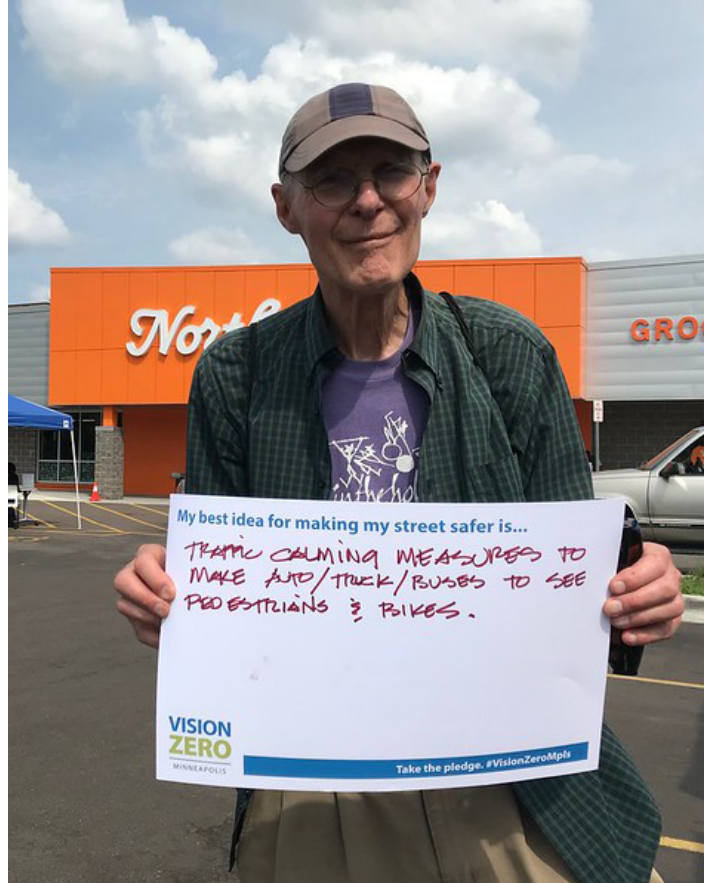 Nort
GRO
My best idea for making my street safer is...
TRAFFIC CALMING MEASURES TO
MAKE AUTO/TRUCK/BUSES TO SEE
PEDESTRIANS & BIKES.
VISION
ZERO
MINNEAPOLIS
Take the pledge. #VisionZeroMpls